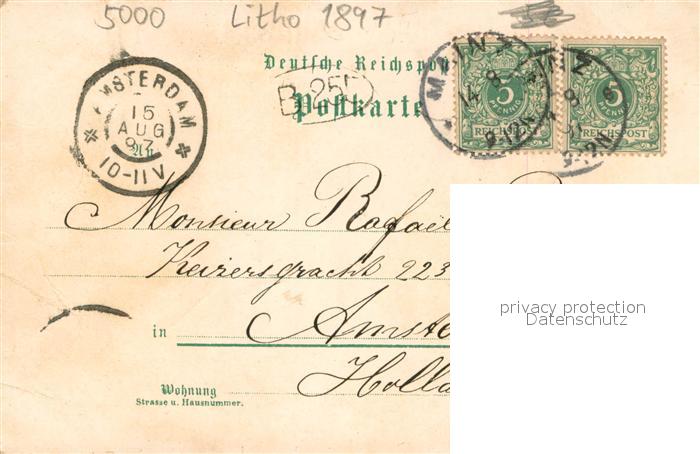 5000 Litho 1897
Deutsche Reichspos
Postkarte
B 25
MAINZ
14 8
5
PFENNIG
REICHSPOST
5
PFENNIG
REICHSPOST
AMSTERDAM
15
AUG
97
10-11V
An
Monsieur Rafaël
Keizersgracht 223
in Amste
Holla
Wohnung
Strasse u. Hausnummer.
privacy protection
Datenschutz